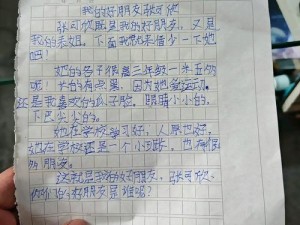 我的好朋友张可欣
张可欣既是我的好朋友，又是
我的表姐，下面我就来借少一下她
吧！
她的个子很高三年级一米五的
呢！长的有点黑，因为她爱运动，
还是我喜欢的瓜子脸，眼睛小小的，
下巴尖尖的。
她在学校学习好，人原也好，
她在学校还是一个小队长，也有很
多朋友。
这就是我的好朋友，张可欣，
你们的好朋友是谁呢？